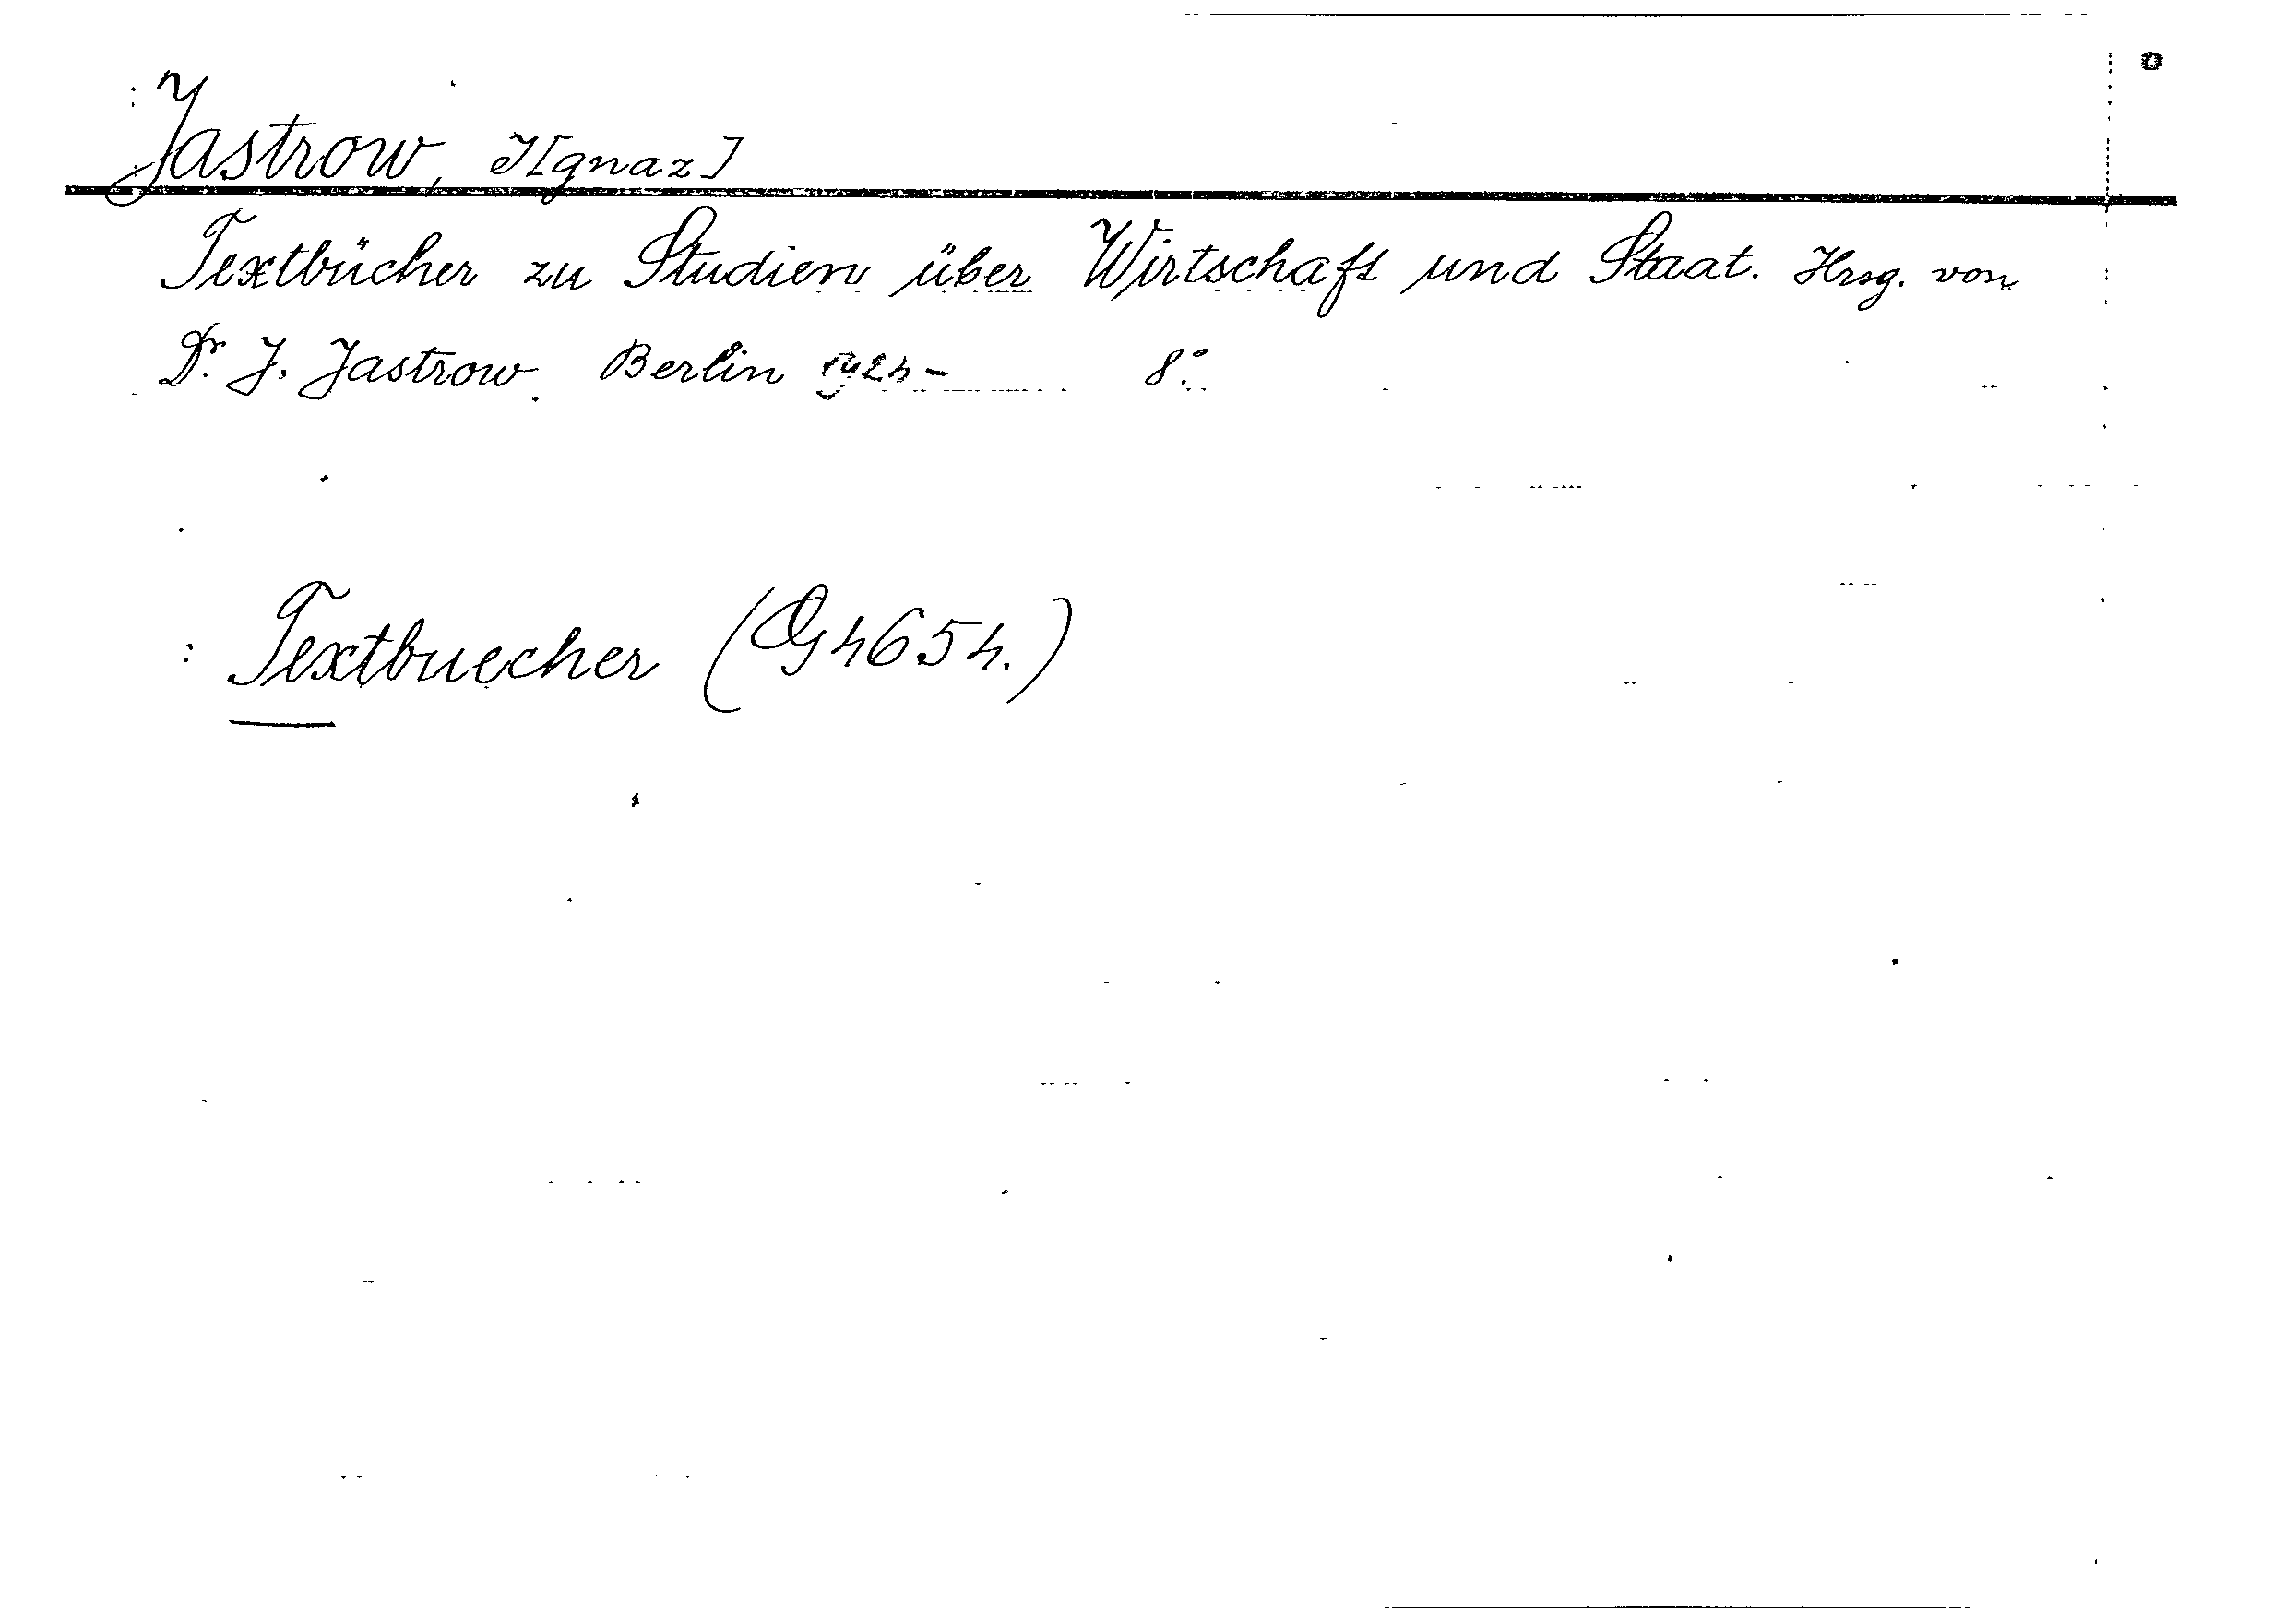 Jastrow, I[gnaz]
Textbücher zu Studien über Wirtschaft und Staat. Hrsg. von
Dr. J. Jastrow. Berlin 8°.
Textbuecher (G4654.)